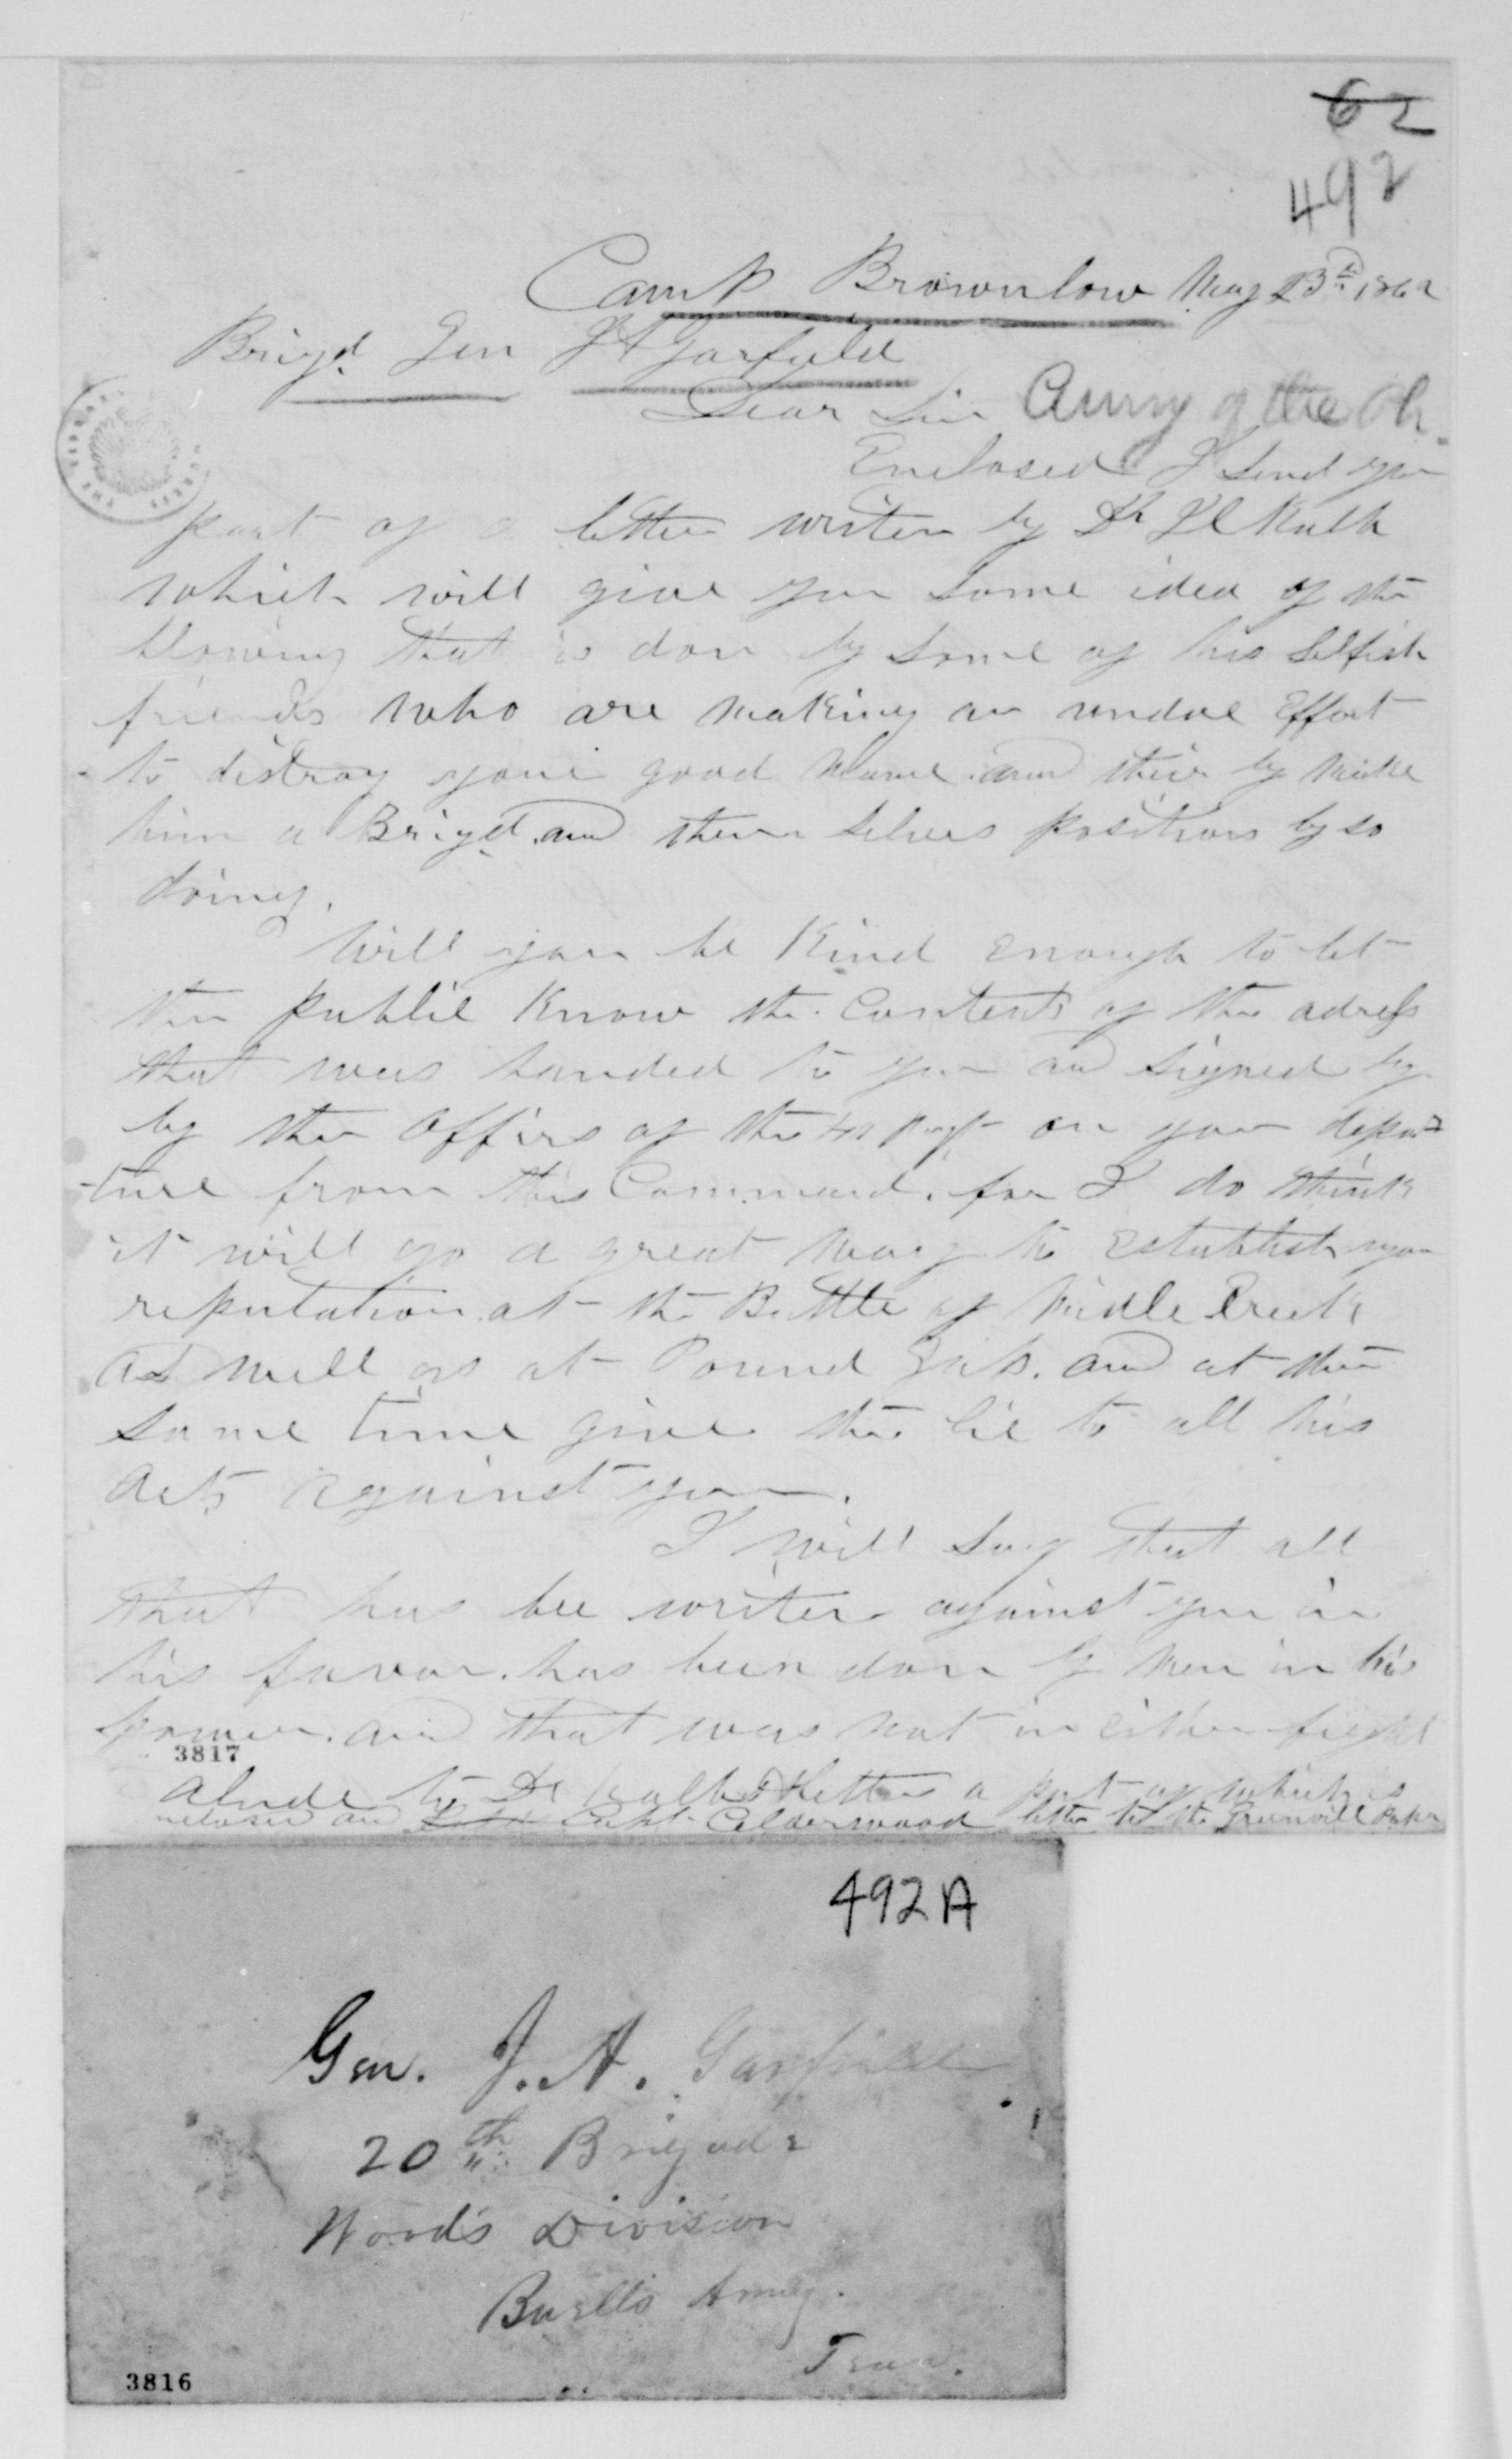 62
492
Camp Brownlow May 23d 1862
Brigd. Gen J A Garfield
Dear Sir Army of the Oh.
Enclosed I send you
part of a letter writen by Dr
which will give you some idea of the
blowing that is don by some of his selfish
friends who are making an undue Effort
to distroy your good name and their by make
him a Brigd. and them selves positions by so
doing.
Will you be Kind enough to let
the public Know the contents of the adress
that was handed to you and signed by
by the offirs of the on your depar
ture from this Command. for I do think
it will go a great way to establish your
reputation at the Battle of Midle Creek
as well as at Pound Gap. and at the
same time give the lie to all his
acts against you.
I will say that all
that has bee writen against you in
his favor. has been don by men in his
power. and that was not in either fight
3817
alude to Dr letter a part of which is
nclosed and Capt Calderwood letter to the Greenvill paper
492A
Gen. J. A. Garfield
20th Brigade
Wood's Division
Buell's Army.
Tenn.
3816